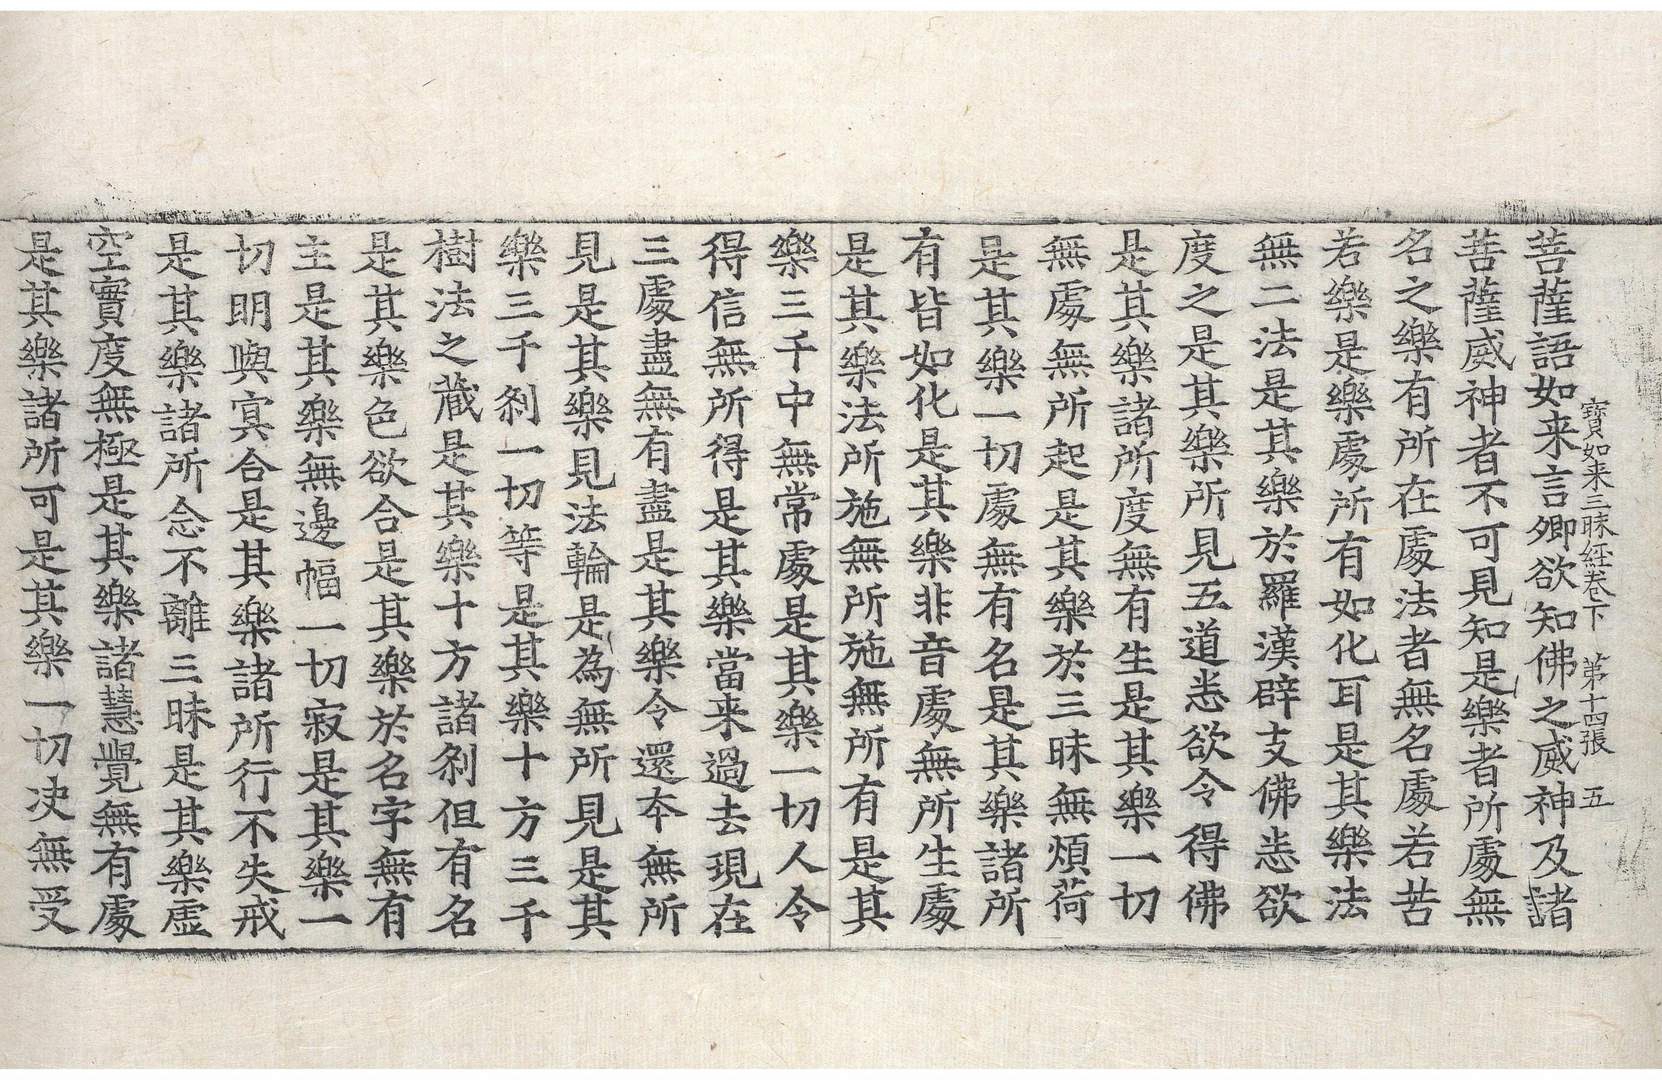 菩薩語如来言卿欲知佛之威神及諸
寶如来三昧経卷下 第十四張 五
菩薩威神者不可見知是樂者所處無
名之樂有所在處法者無名處若苦
若樂是樂處所有如化耳是其樂法
無二法是其樂於羅漢辟支佛恙欲
度之是其樂所見五道恙欲令得佛
是其樂諸所度無有生是其樂一切
無處無所起是其樂於三昧無煩荷
是其樂一切處無有名是其樂諸所
有皆如化是其樂非音處無所生處
是其樂法所施無所施無所有是其
樂三千中無常處是其樂一切人令
得信無所得是其樂當来過去現在
三處盡無有盡是其樂令還夲無所
見是其樂見法輪是為無所見是其
樂三千刹一切等是其樂十方三千
樹法之藏是其樂十方諸刹但有名
是其樂色欲合是其樂於名字無有
主是其樂無邊幅一切寂是其樂一
切明與㝠合是其樂諸所行不失戒
是其樂諸所念不離三昧是其樂虛
空實度無極是其樂諸慧覺無有處
是其樂諸所可是其樂一切決無受